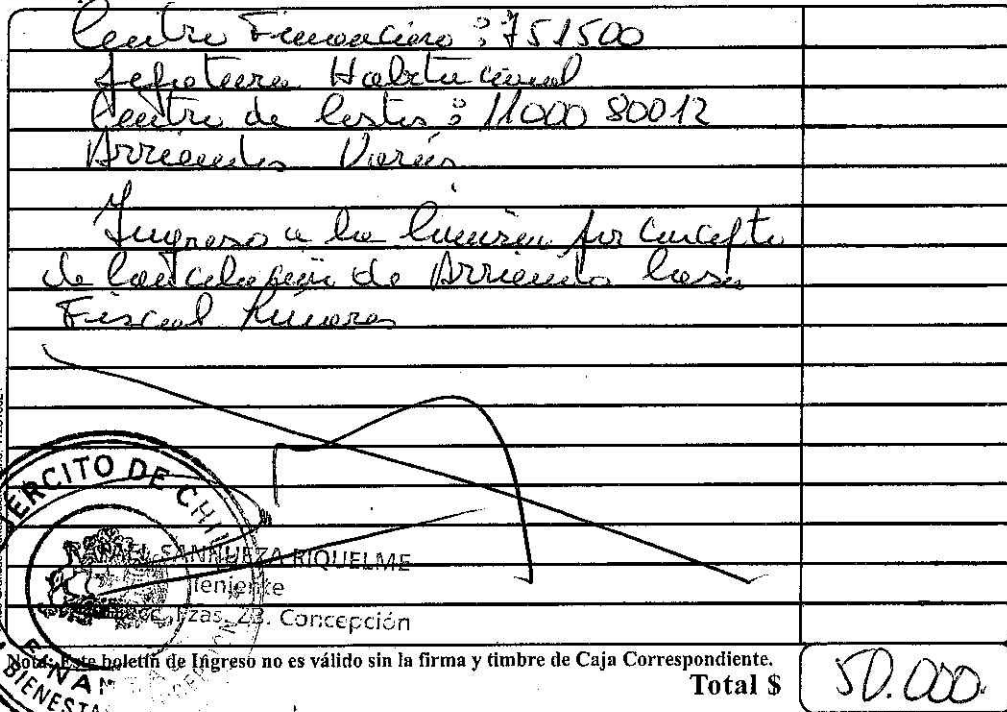 Centro Financiero : 751500
Jefatura Habitacional
Centro de Costos : 11000 80012
Arriendos Varios
Ingreso a la Comisión por Concepto
de Cancelación de Arriendo Casa
Fiscal Linares
EJERCITO DE CHILE
RAFAEL SANHUEZA RIQUELME
Teniente
Fzas. ZB. Concepción
Nota; Este boletín de Ingreso no es válido sin la firma y timbre de Caja Correspondiente.
Total $ 50.000.